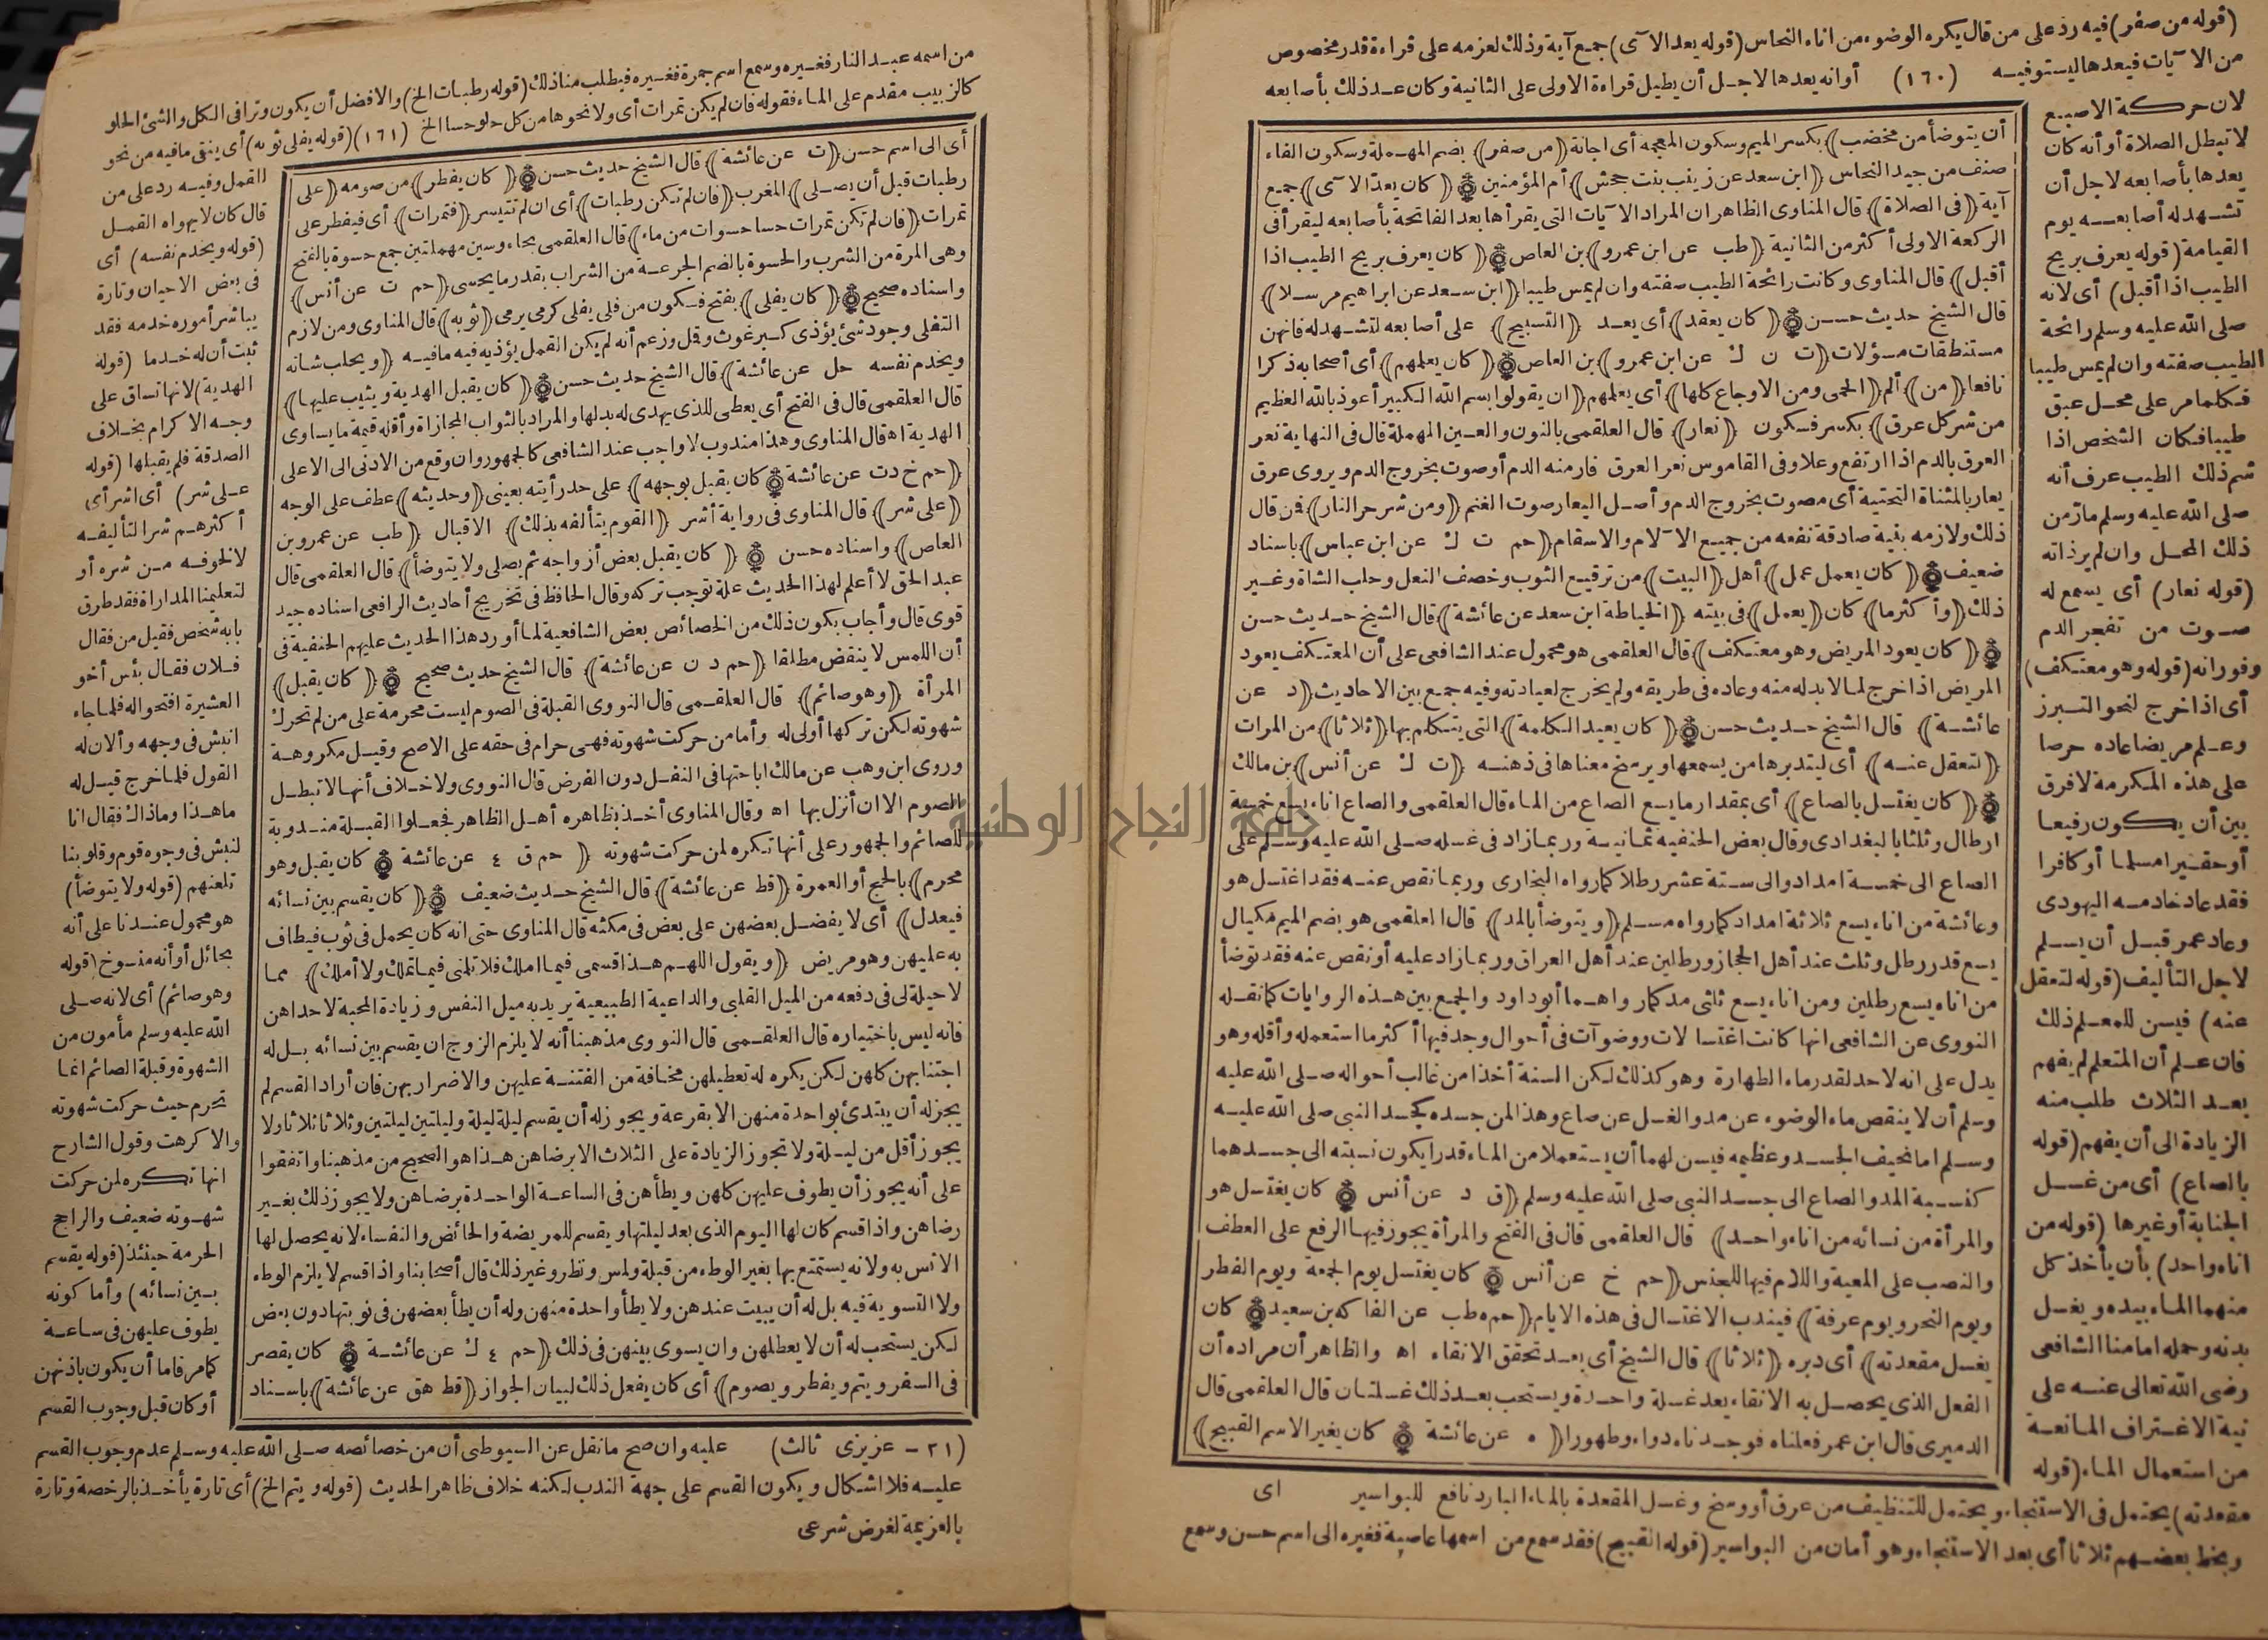 (قوله من صفر) فيه رد على من قال يكره الوضوء من اناء النحاس (قوله يعد الآي) جمع آية وذلك لعزمه على قراءة قدر مخصوص
من الآيات فيعدها ليستوفيه (١٦٠) أو انه يعدها لاجل أن يطيل قراءة الاولى على الثانية وكان عد ذلك بأصابعه
لان حركة الاصبع
لا تبطل الصلاة أو أنه كان
يعدها بأصابعه لاجل أن
تشهد له أصابعه يوم
القيامة (قوله يعرف بريح
الطيب اذا أقبل) أى لانه
صلى الله عليه وسلم رائحة
الطيب صفته وان لم يمس طيبا
فكلما مر على محل عبق
طيبا فكان الشخص اذا
شم ذلك الطيب عرف أنه
صلى الله عليه وسلم مار من
ذلك المحل وان لم ير ذاته
(قوله نعار) أى يسمع له
صوت من تفجر الدم
وفورانه (قوله وهو معتكف)
أى اذا خرج لنحو التبرز
وعلم مريضا عاده حرصا
على هذه المكرمة لا فرق
بين أن يكون رفيعا
أو حقيرا مسلما أو كافرا
فقد عاد خادمه اليهودى
وعاد عمر قبل أن يسلم
لاجل التأليف (قوله لتعقل
عنه) فيسن للمعلم ذلك
فان علم أن المتعلم لم يفهم
بعد الثلاث طلب منه
الزيادة الى أن يفهم (قوله
بالصاع) أى من غسل
الجنابة أو غيرها (قوله من
اناء واحد) بأن يأخذ كل
منهما الماء بيده ويغسل
بدنه وحمله امامنا الشافعى
رضى الله تعالى عنه على
نية الاغتراف المانعة
من استعمال الماء (قوله
أن يتوضأ من مخضب) بكسر الميم وسكون المعجمة أى اجانة (من صفر) بضم المهملة وسكون الفاء
صنف من جيد النحاس (ابن سعد عن زينب بنت جحش) أم المؤمنين (كان يعد الآي) جمع
آية (فى الصلاة) قال المناوى الظاهر ان المراد الآيات التى يقرأها بعد الفاتحة بأصابعه ليقرأ فى
الركعة الاولى أكثر من الثانية (طب عن ابن عمرو) بن العاص (كان يعرف بريح الطيب اذا
أقبل) قال المناوى وكانت رائحة الطيب صفته وان لم يمس طيبا (ابن سعد عن ابراهيم مرسلا)
قال الشيخ حديث حسن (كان يعقد) أى يعد (التسبيح) على أصابعه لتشهد له فانهن
مستنطقات مسؤلات (ت ن ك عن ابن عمرو) بن العاص (كان يعلمهم) أى أصحابه ذكرا
نافعا (من) ألم (الحمى ومن الاوجاع كلها) أى يعلمهم (ان يقولوا بسم الله الكبير أعوذ بالله العظيم
من شر كل عرق) بكسر فسكون (نعار) قال العلقمى بالنون والعين المهملة قال فى النهاية نعر
العرق بالدم اذا ارتفع وعلا وفى القاموس نعر العرق فار منه الدم أو صوت بخروج الدم ويروى عرق
يعار بالمثناة التحتية أى مصوت بخروج الدم وأصل اليعار صوت الغنم (ومن شر حر النار) فمن قال
ذلك ولازمه بنية صادقة نفعه من جميع الآلام والاسقام (حم ت ك عن ابن عباس) باسناد
ضعيف (كان يعمل عمل) أهل (البيت) من ترقيع الثوب وخصف النعل وحلب الشاة وغير
ذلك (وأكثر ما) كان (يعمل) فى بيته (الخياطة ابن سعد عن عائشة) قال الشيخ حديث حسن
(كان يعود المريض وهو معتكف) قال العلقمى هو محمول عند الشافعى على أن المعتكف يعود
المريض اذا خرج لما لا بد له منه وعاده فى طريقه ولم يخرج لعيادته وفيه جمع بين الاحاديث (د عن
عائشة) قال الشيخ حديث حسن (كان يعيد الكلمة) التى يتكلم بها (ثلاثا) من المرات
(لتعقل عنه) أى ليتدبرها من يسمعها ويرسخ معناها فى ذهنه (ت ك عن أنس) بن مالك
(كان يغتسل بالصاع) أى بمقدار ما يسع الصاع من الماء قال العلقمى والصاع اناء يسع خمسة
ارطال وثلثا بالبغدادى وقال بعض الحنفية ثمانية وربما زاد فى غسله صلى الله عليه وسلم على
الصاع الى خمسة امداد والى ستة عشر رطلا كما رواه البخارى وربما نقص عنه فقد اغتسل هو
وعائشة من اناء يسع ثلاثة امداد كما رواه مسلم (ويتوضأ بالمد) قال العلقمى هو بضم الميم مكيال
يسع قدر رطل وثلث عند أهل الحجاز ورطلين عند أهل العراق وربما زاد عليه أو نقص عنه فقد توضأ
من اناء يسع رطلين ومن اناء يسع ثلثى مد كما رواهما أبو داود والجمع بين هذه الروايات كما نقله
النووى عن الشافعى انها كانت اغتسالات ووضوآت فى أحوال وجد فيها أكثر ما استعمله وأقله وهو
يدل على انه لا حد لقدر ماء الطهارة وهو كذلك لكن السنة أخذا من غالب أحواله صلى الله عليه
وسلم أن لا ينقص ماء الوضوء عن مد والغسل عن صاع وهذا لمن جسده كجسد النبى صلى الله عليه
وسلم اما نحيف الجسد وعظيمه فيسن لهما أن يستعملا من الماء قدرا يكون نسبته الى جسدهما
كنسبة المد والصاع الى جسد النبى صلى الله عليه وسلم (ق د عن أنس كان يغتسل هو
والمرأة من نسائه من اناء واحد) قال العلقمى قال فى الفتح والمرأة يجوز فيها الرفع على العطف
والنصب على المعية واللام فيها للجنس (حم خ عن أنس كان يغتسل يوم الجمعة ويوم الفطر
ويوم النحر ويوم عرفة) فيندب الاغتسال فى هذه الايام (حم ه طب عن الفاكه بن سعيد كان
يغسل مقعدته) أى دبره (ثلاثا) قال الشيخ أى بعد تحقق الانقاء اه والظاهر أن مراده أن
الفعل الذى يحصل به الانقاء يعد غسلة واحدة ويستحب بعد ذلك غسلتان قال العلقمى قال
الدميرى قال ابن عمر فعلناه فوجدناه دواء وطهورا (ه عن عائشة كان يغير الاسم القبيح)
مقعدته) يحتمل فى الاستنجاء ويحتمل للتنظيف من عرق أو وسخ وغسل المقعدة بالماء البارد نافع للبواسير اى
وبخط بعضهم ثلاثا أى بعد الاستنجاء وهو أمان من البواسير (قوله القبيح) فقد سمع من اسمها عاصية فغيره الى اسم حسن وسمع
من اسمه عبد النار فغيره وسمع اسم جمرة فغيره فيطلب منا ذلك (قوله رطبات الخ) والافضل أن يكون وترا فى الكل والشئ الحلو
كالزبيب مقدم على الماء فقوله فان لم يكن تمرات أى ولا نحوها من كل حلو حسا الخ (١٦١) (قوله يفلى ثوبه) أى ينقى ما فيه من نحو
القمل وفيه رد على من
قال كان لا يهواه القمل
(قوله ويخدم نفسه) أى
فى بعض الاحيان وتارة
يباشر أموره خدمه فقد
ثبت أن له خدما (قوله
الهدية) لانها تساق على
وجه الاكرام بخلاف
الصدقة فلم يقبلها (قوله
على شر) أى اشر أى
أكثرهم شرا لتأليفه
لا لخوفه من شره أو
لتعليمنا المداراة فقد طرق
بابه شخص فقيل من فقال
فلان فقال بئس أخو
العشيرة افتحوا له فلما جاء
انبش فى وجهه وألان له
القول فلما خرج قيل له
ما هذا وماذاك فقال انا
لنبش فى وجوه قوم وقلوبنا
تلعنهم (قوله ولا يتوضأ)
هو محمول عندنا على أنه
بحائل أو أنه منسوخ (قوله
وهو صائم) أى لانه صلى
الله عليه وسلم مأمون من
الشهوة وقبلة الصائم انما
تحرم حيث حركت شهوته
والا كرهت وقول الشارح
انها تكره لمن حركت
شهوته ضعيف والراجح
الحرمة حينئذ (قوله يقسم
بين نسائه) وأما كونه
يطوف عليهن فى ساعة
كما مر فاما أن يكون باذنهن
أو كان قبل وجوب القسم
أى الى اسم حسن (ت عن عائشة) قال الشيخ حديث حسن (كان يفطر) من صومه (على
رطبات قبل أن يصلى) المغرب (فان لم تكن رطبات) أى ان لم تتيسر (فتمرات) أى فيفطر على
تمرات (فان لم تكن تمرات حسا حسوات من ماء) قال العلقمى بحاء وسين مهملتين جمع حسوة بالفتح
وهى المرة من الشرب والحسوة بالضم الجرعة من الشراب بقدر ما يحسى (حم ت عن أنس)
واسناده صحيح (كان يفلى) بفتح فسكون من فلى يفلى كرمى يرمى (ثوبه) قال المناوى ومن لازم
التفلى وجود شئ يؤذى كبرغوث وقل وزعم أنه لم يكن القمل يؤذيه فيه ما فيه (ويحلب شاته
ويخدم نفسه حل عن عائشة) قال الشيخ حديث حسن (كان يقبل الهدية ويثيب عليها)
قال العلقمى قال فى الفتح أى يعطى للذى يهدى له بدلها والمراد بالثواب المجازاة وأقله قيمة ما يساوى
الهدية اه قال المناوى وهذا مندوب لا واجب عند الشافعى كالجمهور وان وقع من الادنى الى الاعلى
(حم خ د ت عن عائشة كان يقبل بوجهه) على حد رأيته بعينى (وحديثه) عطف على الوجه
(على شر) قال المناوى فى رواية أشر (القوم يتألفه بذلك) الاقبال (طب عن عمرو بن
العاص) واسناده حسن (كان يقبل بعض أزواجه ثم يصلى ولا يتوضأ) قال العلقمى قال
عبد الحق لا أعلم لهذا الحديث علة توجب تركه وقال الحافظ فى تخريج أحاديث الرافعى اسناده جيد
قوى قال وأجاب بكون ذلك من الخصائص بعض الشافعية لما أورد هذا الحديث عليهم الحنفية فى
أن اللمس لا ينقض مطلقا (حم د ن عن عائشة) قال الشيخ حديث صحيح (كان يقبل)
المرأة (وهو صائم) قال العلقمى قال النووى القبلة فى الصوم ليست محرمة على من لم تحرك
شهوته لكن تركها أولى له وأما من حركت شهوته فهى حرام فى حقه على الاصح وقيل مكروهة
وروى ابن وهب عن مالك اباحتها فى النفل دون الفرض قال النووى ولا خلاف أنها لا تبطل
الصوم الا ان أنزل بها اه وقال المناوى أخذ بظاهره أهل الظاهر فجعلوا القبلة مندوبة
للصائم والجمهور على أنها تكره لمن حركت شهوته (حم ق ٤ عن عائشة كان يقبل وهو
محرم) بالحج أو العمرة (قط عن عائشة) قال الشيخ حديث ضعيف (كان يقسم بين نسائه
فيعدل) أى لا يفضل بعضهن على بعض فى مكثه قال المناوى حتى انه كان يحمل فى ثوب فيطاف
به عليهن وهو مريض (ويقول اللهم هذا قسمى فيما املك فلا تلمنى فيما تملك ولا أملك) مما
لا حيلة لى فى دفعه من الميل القلبى والداعية الطبيعية يريد به ميل النفس وزيادة المحبة لاحداهن
فانه ليس باختياره قال العلقمى قال النووى مذهبنا أنه لا يلزم الزوج ان يقسم بين نسائه بل له
اجتنابهن كلهن لكن يكره له تعطيلهن مخافة من الفتنة عليهن والاضرار بهن فان أراد القسم لم
يجز له أن يبتدئ بواحدة منهن الا بقرعة ويجوز له أن يقسم ليلة ليلة وليلتين ليلتين وثلاثا ثلاثا ولا
يجوز أقل من ليلة ولا تجوز الزيادة على الثلاث الا برضاهن هذا هو الصحيح من مذهبنا واتفقوا
على أنه يجوز أن يطوف عليهن كلهن ويطأهن فى الساعة الواحدة برضاهن ولا يجوز ذلك بغير
رضاهن واذا قسم كان لها اليوم الذى بعد ليلتها ويقسم للمريضة والحائض والنفساء لانه يحصل لها
الانس به ولانه يستمتع بها بغير الوطء من قبلة ولمس ونظر وغير ذلك قال أصحابنا واذا قسم لا يلزم الوطء
ولا التسوية فيه بل له أن يبيت عندهن ولا يطأ واحدة منهن وله أن يطأ بعضهن فى نوبتها دون بعض
لكن يستحب له أن لا يعطلهن وان يسوى بينهن فى ذلك (حم ٤ ك عن عائشة كان يقصر
فى السفر ويتم ويفطر ويصوم) أى كان يفعل ذلك لبيان الجواز (قط هق عن عائشة) باسناد
(٢١ - عزيزى ثالث) عليه وان صح ما نقل عن السيوطى أن من خصائصه صلى الله عليه وسلم عدم وجوب القسم
عليه فلا اشكال ويكون القسم على جهة الندب لكنه خلاف ظاهر الحديث (قوله ويتم الخ) أى تارة يأخذ بالرخصة وتارة
بالعزيمة لغرض شرعى
جامعة النجاح الوطنية